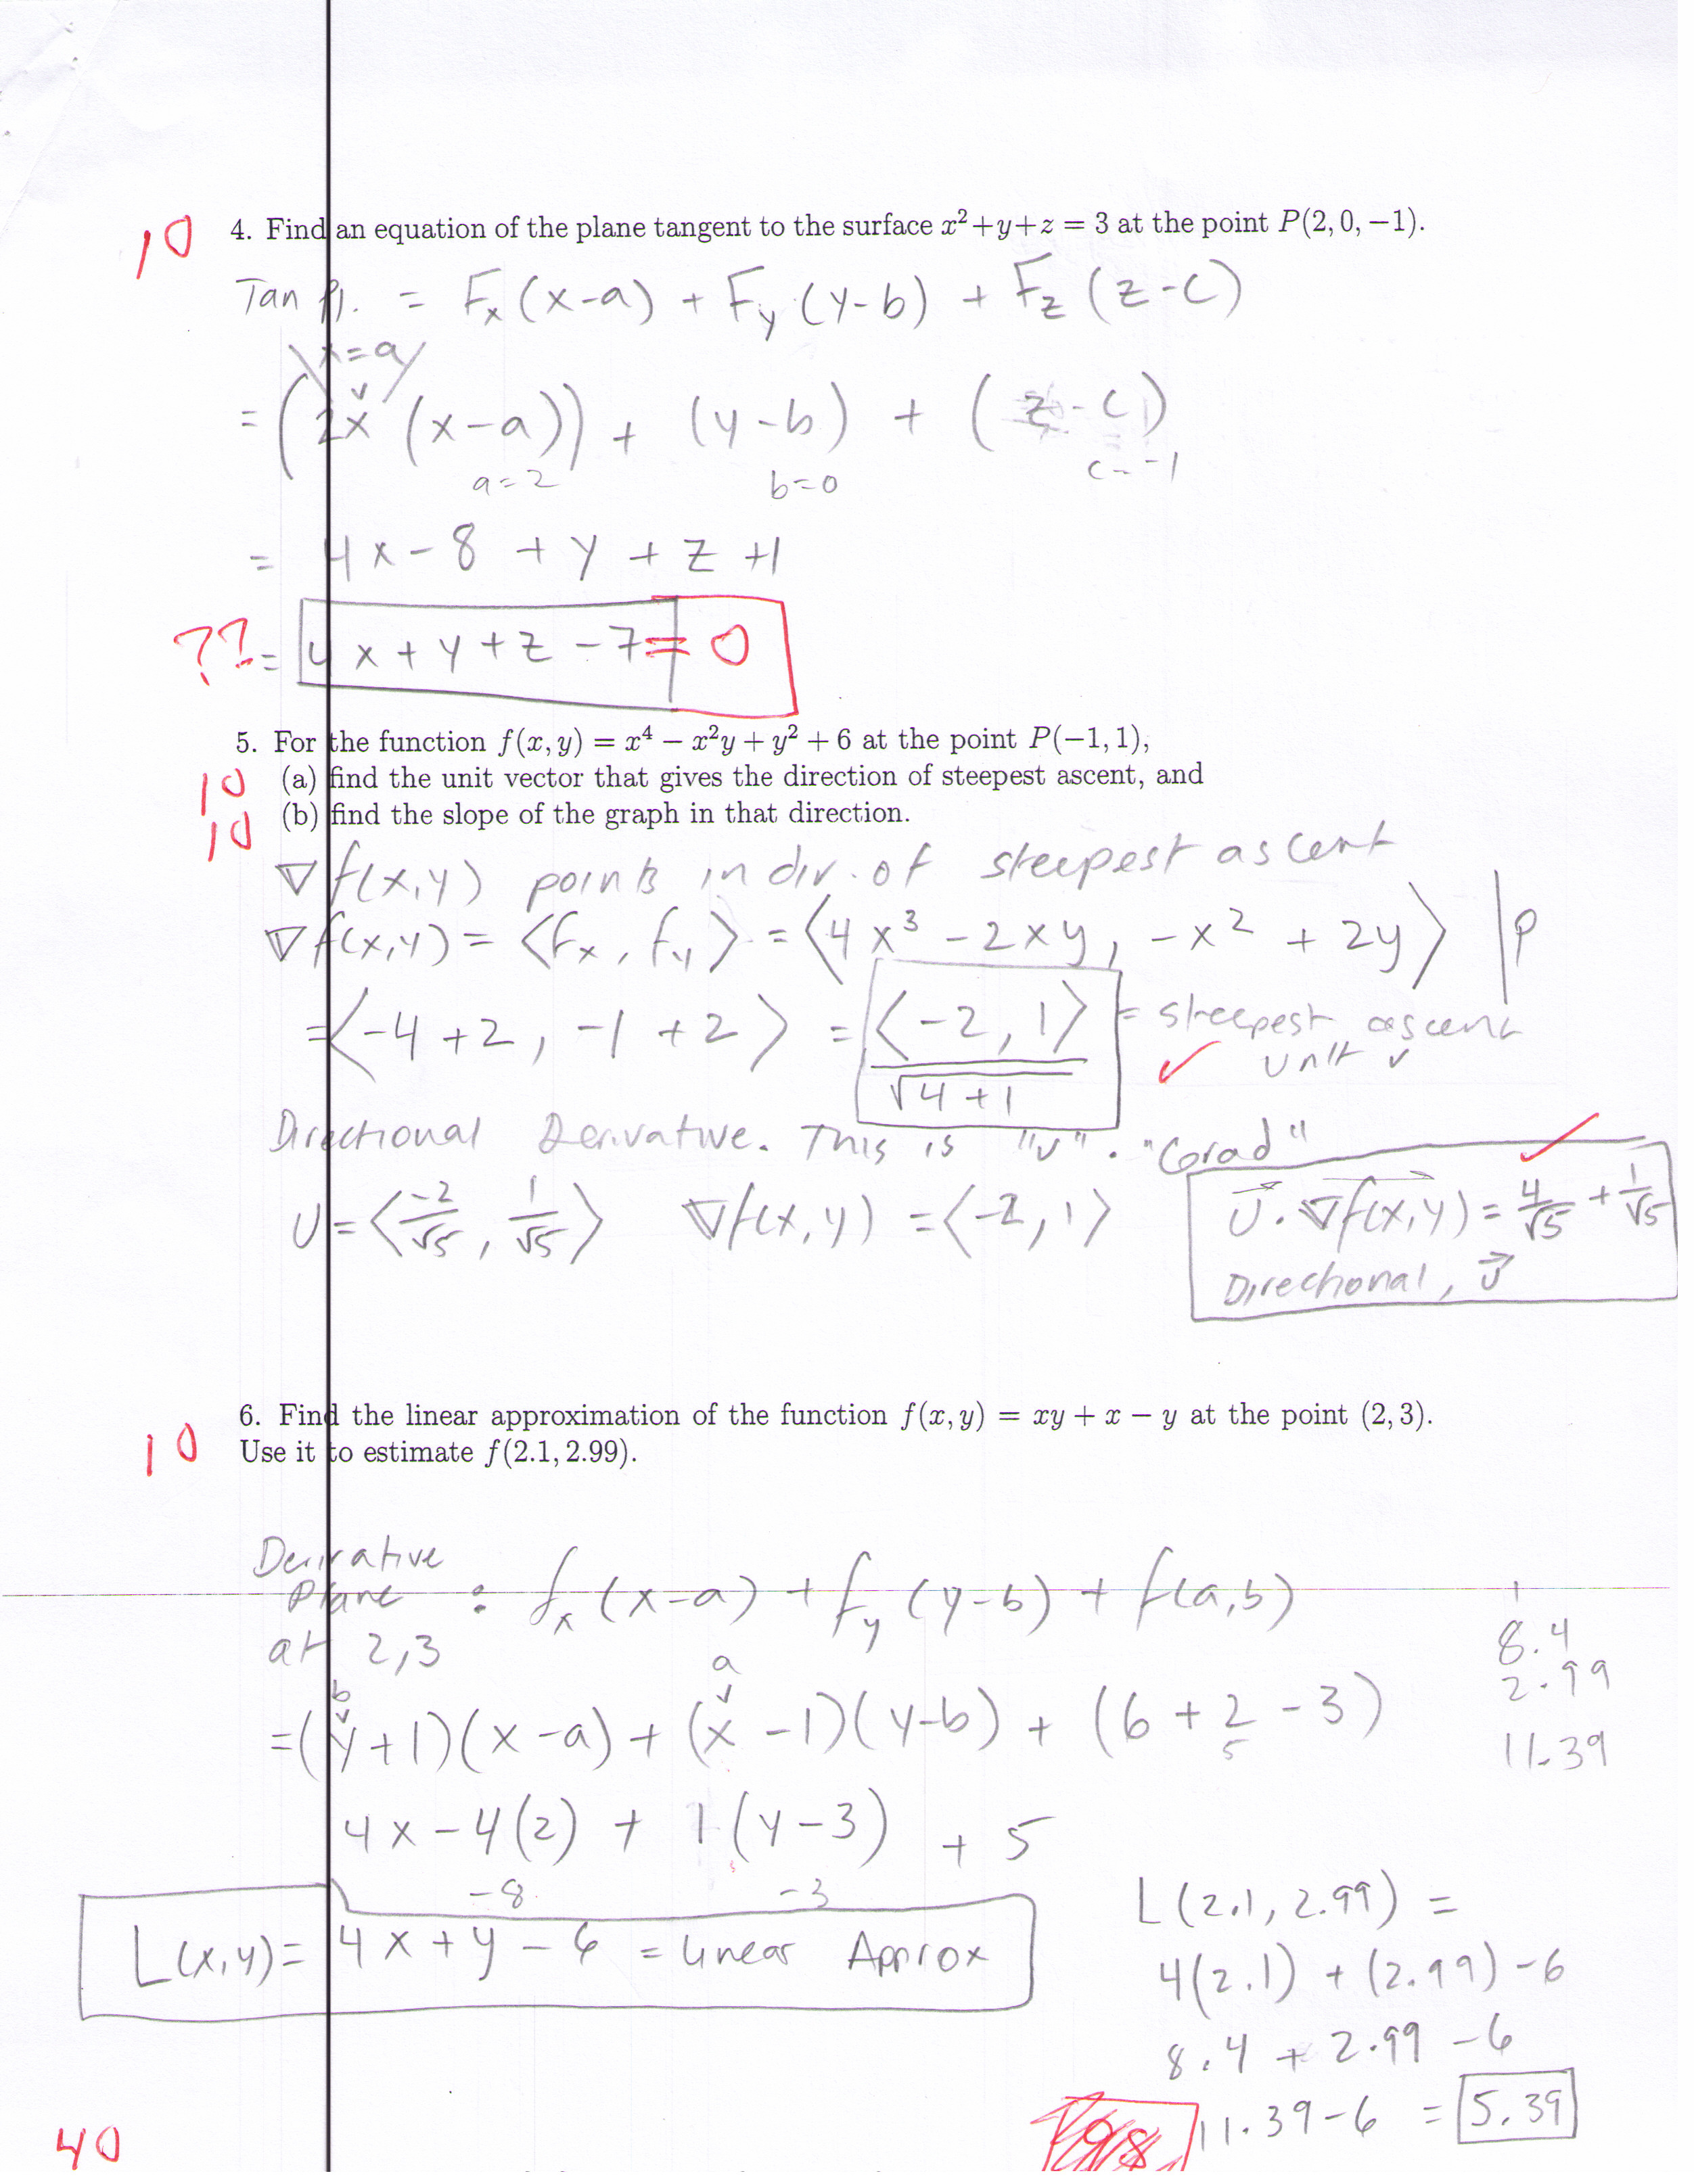 10 4. Find an equation of the plane tangent to the surface x²+y+z = 3 at the point P(2, 0, −1).
Tan Pl. = Fx (x-a) + Fy (y-b) + Fz (z-c)
x=a
= (2x (x-a)) + (y-b) + (z-c)
a=2 b=0 c=-1
= 4x-8 + y + z +1
?? = 4x+y+z-7 = 0
5. For the function f(x, y) = x⁴ − x²y + y² + 6 at the point P(−1, 1),
10 (a) find the unit vector that gives the direction of steepest ascent, and
10 (b) find the slope of the graph in that direction.
∇f(x,y) points in dir. of steepest ascent
∇f(x,y) = <fx, fy> = <4x³ - 2xy, -x² + 2y> |P
= <-4+2, -1+2> = <-2, 1> / √4+1 = steepest ascent
✓ unit v
Directional Derivative. This is "u" . "Grad"
U = <-2/√5, 1/√5> ∇f(x,y) = <-2, 1> U⃗ . ∇f(x,y) = 4/√5 + 1/√5 ✓
Directional, U⃗
10 6. Find the linear approximation of the function f(x, y) = xy + x − y at the point (2, 3).
Use it to estimate f(2.1, 2.99).
Derivative
Plane : fx (x-a) + fy (y-b) + f(a,b)
at 2,3
8.4
2.99
11.39
b a
=(y+1)(x-a) + (x-1)(y-b) + (6+2-3)
5
4x-4(2) + 1(y-3) + 5
-8 -3
L(x,y)= 4x+y-6 = Linear Approx
L(2.1, 2.99) =
4(2.1) + (2.99) -6
8.4 + 2.99 -6
11.39-6 = 5.39
40 98